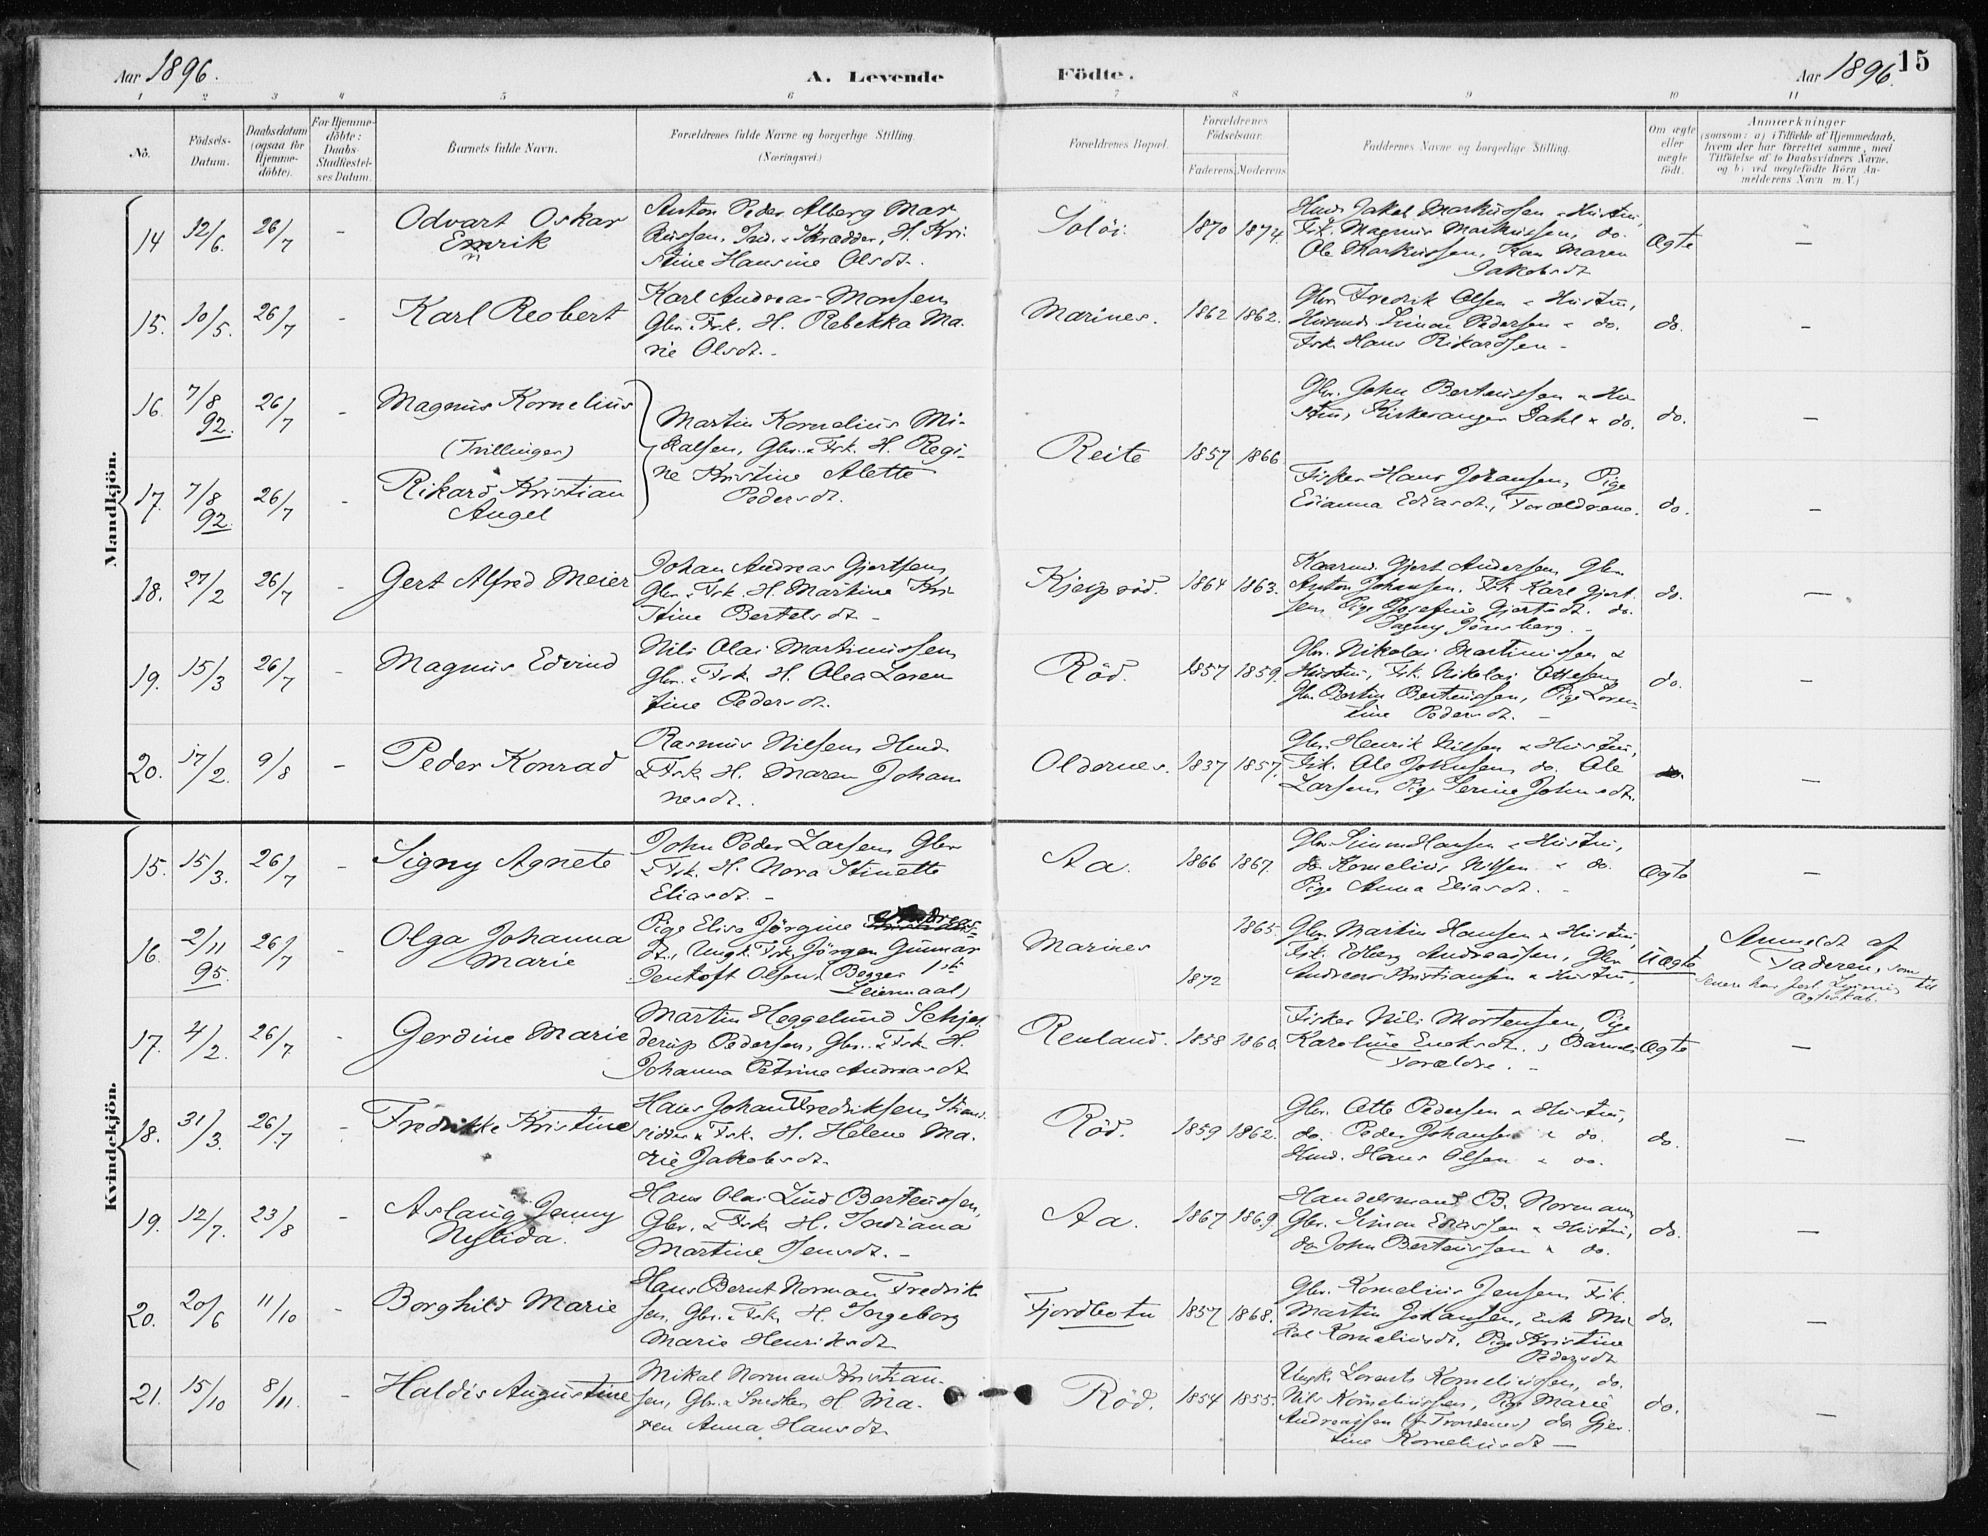 Aar 1896.
A. Levende
Födte.
Aar 1896.
15
1 2 3 4 5 6 7 8 9 10 11
No.
Födsels-Datum.
Daabsdatum (ogsaa for Hjemmedöbte).
For Hjemmedöbte: Daabs-Stadfæstelses Datum.
Barnets fulde Navn.
Forældrenes fulde Navne og borgerlige Stilling. (Næringsvei.)
Forældrenes Bopæl.
Forældrenes Födselsaar.
Faderens. Moderens.
Faddernes Navne og borgerlige Stilling.
Om ægte eller uægte födt.
Anmærkninger
(saasom: a) i Tilfælde af Hjemmedaab, hvem der har forrettet samme, med Tilföielse af to Daabsvidners Navne, og b) ved uægtefödte Börn Anmelderens Navn m. V.)
Mandkjön.
14 12/6. 26/7 - Odvart Oskar
Enrik
n
Anton Peder Alberg Mar
kussen, Ind. & Skrædder, H. Kri
stine Hansine Olsdt.
Solöi. 1870 1874.
Jakob Markussen & Hustru,
Fsk. Magnus Markussen, do.
Ole Markussen, Maren
Jakobsdt
Ægte —
15. 10/5. 26/7 - Karl Reobert
Karl Andreas Monsen
Gbr. & Fsk. H. Rebekka Ma-
rie Olsdt. -
Marines. 1862 1862.
Gbr. Fredrik Olsen & Hustru,
Simon Pedersen & do.
Fsk. Hans Rikardsen -
do. —
16. 7/8 92. 26/7 - Magnus Kornelius
(Tvillinger)
Martin Kornelius Mi-
kalsen, Gbr. & Fsk. H. Regi-
ne Kristine Alette
Pedersdt.
Reite 1857 1866
Gbr. John Berteussen & Hu-
stru, Kirkesanger Dahl & do.
do. —
17. 7/8 92. 26/7 - Rikard Kristian
Angel
Fisker Hans Johansen, Pige
Forældrene.
do. —
18. 27/2 26/7 - Gert Alfred Meier
Johan Andreas Gjertsen
Gbr. & Fsk. H. Martine Kri
stine Bertelsdt -
Kjelpröd. 1864 1863.
Gjert Andersen, Gbr.
Anton Johansen, Fsk Karl Gjert
sen, Pige Josefine Gjertsdt. do.
Dagny
do. —
19. 15/3 26/7 Magnus Edvind
Nils Olai Martinussen
Gbr. & Fsk. H. Olea Loren
tine Pedersdt.
Röd. 1857 1859.
Gbr. Nikolai Martinussen &
Hustru, Fsk. Nikolai Ottesen
Gbr. Bertin Berteussen, Pige Loren-
tine Pedersdt. -
do. —
20. 17/2. 9/8 - Peder Konrad
Rasmus Nilsen Hmd
& Fsk. H. Maren Johan
nesdt.
Oldernes. 1837 1857.
Gbr. Henrik Nilsen & Hustru,
Fsk. Ole Johnsen do. Ole
Larsen, Pige Serine Johnsdt.
do. —
Kvindekjön.
15. 15/3. 26/7 - Signy Agnete
John Peder Larsen Gbr
& Fsk. H. Nora Stinette
Eliasdt. -
Aa. 1866 1867.
Gbr. Simon Hansen & Hustru,
do Kornelius Nilsen & do.
Pige Anna Eliasdt. -
Ægte —
16. 2/11 95. 26/7 - Olga Johanna
Marie
Pige Elise Jörgine Andreas-
dt., Ungk. Fsk. Jörgen Gunnar
Olsen, (Begges 1ste
Leiermaal)
Marines 1872 1865.
Gbr. Martin Hansen & Hustru,
Fsk. Edberg Andreassen, Gbr
Andreas Kristiansen & Hustru,
Uægte
Anmeldt af
Faderen, som
senere har faat Lysning til
Ægteskab.
17. 4/2. 26/7 Gerdine Marie
Martin Heggelund Schjel
derup Pedersen, Gbr. & Fsk H.
Johanna Petrine Andreasdt
Renland. 1858 1860.
Fisker Nils Mortensen, Pige
Karoline , Barnets
Forældre. -
Ægte —
18. 31/3. 26/7. - Fredrikke Kristine
Hans Johan Fredriksen Strand
sidder & Fsk. H. Helene Ma-
rie Jakobsdt.
Röd. 1859 1862.
Gbr. Otto Pedersen & Hustru,
do. Peder Johansen & do.
Hmd. Hans Olsen & do.
do. —
19. 12/7. 23/8 - Aslaug Jenny
Nylida.
Hans Olai Lind Berteussen,
Gbr. & Fsk H. Indiana
Martine Jensdt. -
Aa. 1867 1869.
Handelsmand B. Normann,
Gbr. Simon Eliassen & Hustru,
do John Berteussen & do.
do. —
20. 20/6 11/10 - Borghild Marie
Hans Bernt Norman Fredrik
sen, Gbr. & Fsk H. Ingeborg
Marie Henriksdt
Fjordbotn 1857 1868.
Gbr. Kornelius Jensen Fsk
Martin Johansen, Enk. Mi
kal Korneliusdt, Pige Kristine
Pedersdt
do. —
21. 15/10 8/11. - Haldis Augustine
Mikal Norman Kristian-
sen, Gbr. & Snedker, H Ma-
ren Anna Hansdt
Röd. 1854 1855.
Ungk. Lorents Korneliussen, do.
Nils Korneliussen, Pige Marie
Andreassen (fr Trondenes) do Gjer-
tine Korneliusdt —
do. —